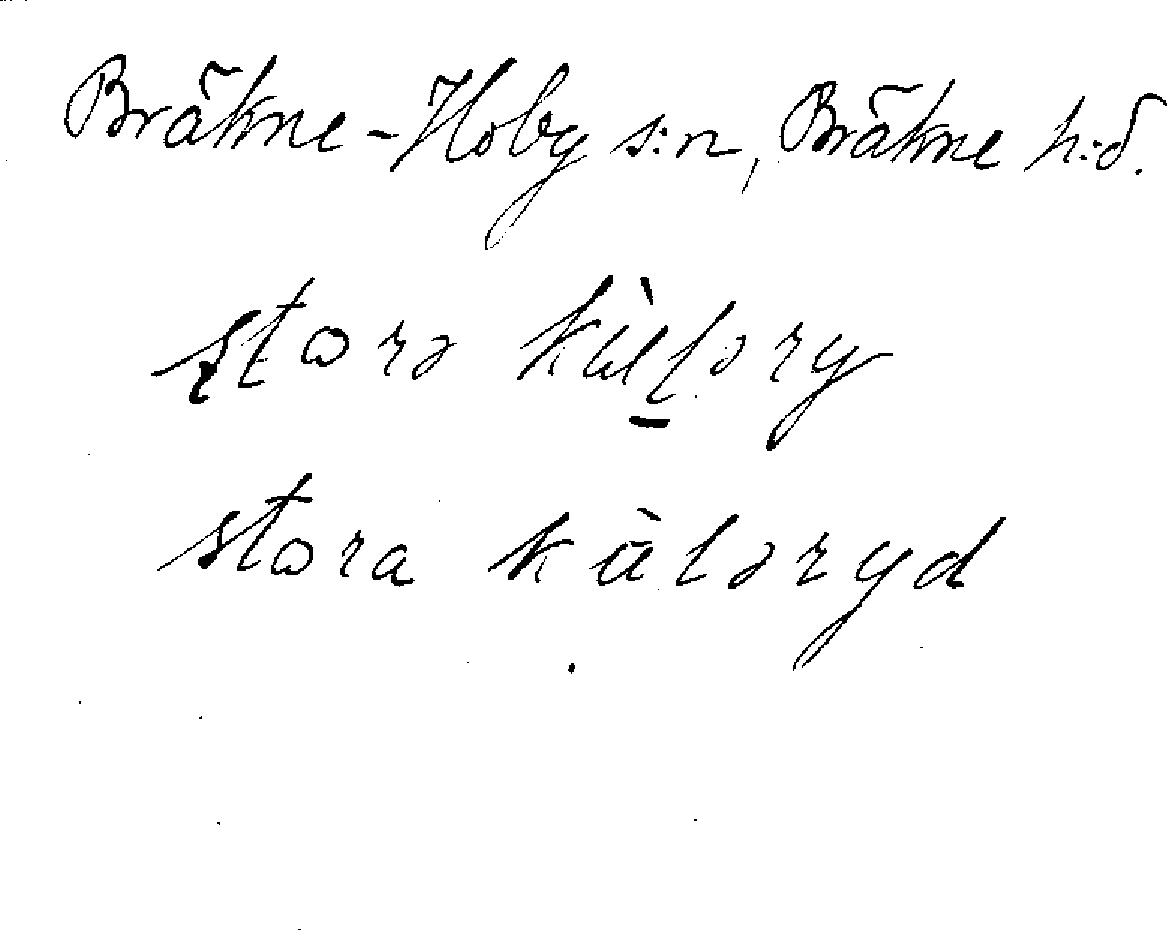 Bräkne-Hoby s:n, Bräkne h:d.
stɷrə kùl̲ləry
stɷra kùləryd